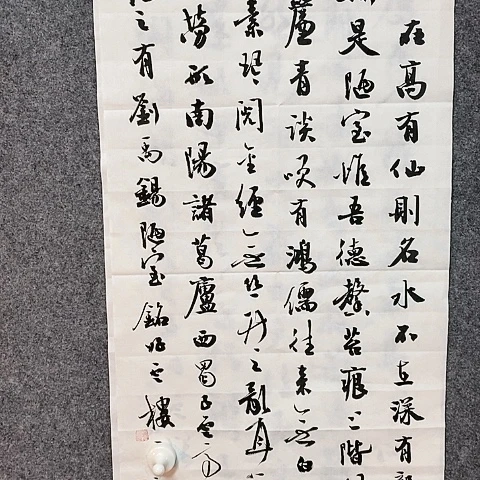 在高有仙則名水不在深有
是陋室惟吾德馨苔痕上階
簾青談笑有鴻儒往來無白
素琴閱金經無絲竹之亂耳
勞形南陽諸葛廬西蜀子雲亭
之有劉禹錫陋室銘